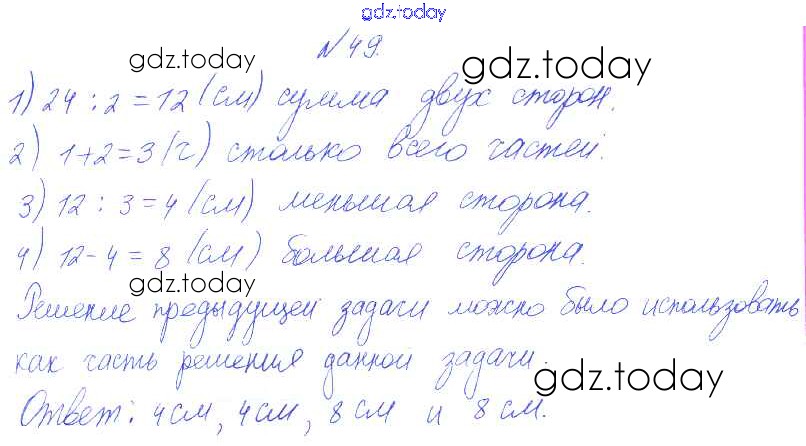 gdz.today
№49.
gdz.today
gdz.today
1) 24 : 2 = 12 (см) сумма двух сторон.
2) 1+2=3 (ч) столько всего частей.
gdz.today
gdz.today
3) 12 : 3 = 4 (см) меньшая сторона.
4) 12-4 = 8 (см) большая сторона.
gdz.today
Решение предыдущей задачи можно было использовать
как часть решения данной задачи.
gdz.today
Ответ: 4см, 4см, 8см и 8см.